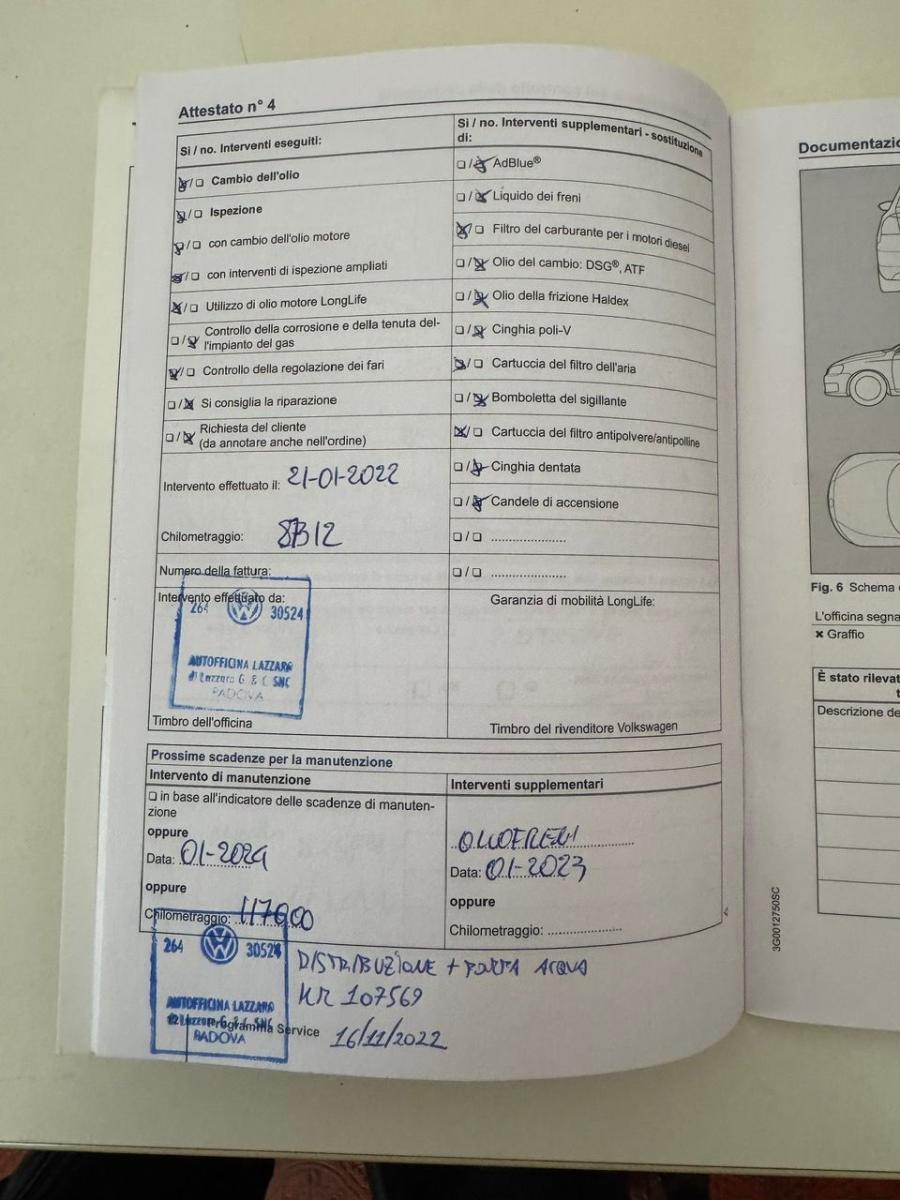 Attestato n° 4
Sì / no. Interventi eseguiti:
☒/☐ Cambio dell'olio
☒/☐ Ispezione
☒/☐ con cambio dell'olio motore
☒/☐ con interventi di ispezione ampliati
☒/☐ Utilizzo di olio motore LongLife
☐/☒ Controllo della corrosione e della tenuta del-
l'impianto del gas
☒/☐ Controllo della regolazione dei fari
☐/☒ Si consiglia la riparazione
☐/☒ Richiesta del cliente
(da annotare anche nell'ordine)
Intervento effettuato il: 21-01-2022
Chilometraggio:
Numero della fattura:
Intervento effettuato da:
264 30524
AUTOFFICINA LAZZARO
di Lazzaro G & C SNC
PADOVA
Timbro dell'officina
Sì / no. Interventi supplementari - sostituzione
di:
☐/☒ AdBlue®
☐/☒ Liquido dei freni
☒/☐ Filtro del carburante per i motori diesel
☐/☒ Olio del cambio: DSG®, ATF
☐/☒ Olio della frizione Haldex
☐/☒ Cinghia poli-V
☒/☐ Cartuccia del filtro dell'aria
☐/☒ Bomboletta del sigillante
☒/☐ Cartuccia del filtro antipolvere/antipolline
☐/☒ Cinghia dentata
☐/☒ Candele di accensione
☐/☐ ....................
☐/☐ ....................
Garanzia di mobilità LongLife:
Timbro del rivenditore Volkswagen
Prossime scadenze per la manutenzione
Intervento di manutenzione
☐ in base all'indicatore delle scadenze di manuten-
zione
oppure
Data: 01-2024
oppure
Chilometraggio: 117000
Interventi supplementari
Data: 01-2023
oppure
Chilometraggio: ....................
264 30524
AUTOFFICINA LAZZARO
PADOVA
Programma Service
DISTRIBUZIONE + POMPA ACQUA
KM 107569
16/11/2022
3G0012750SC
Documentazi
Fig. 6 Schema
L'officina segna
× Graffio
È stato rileva
Descrizione de